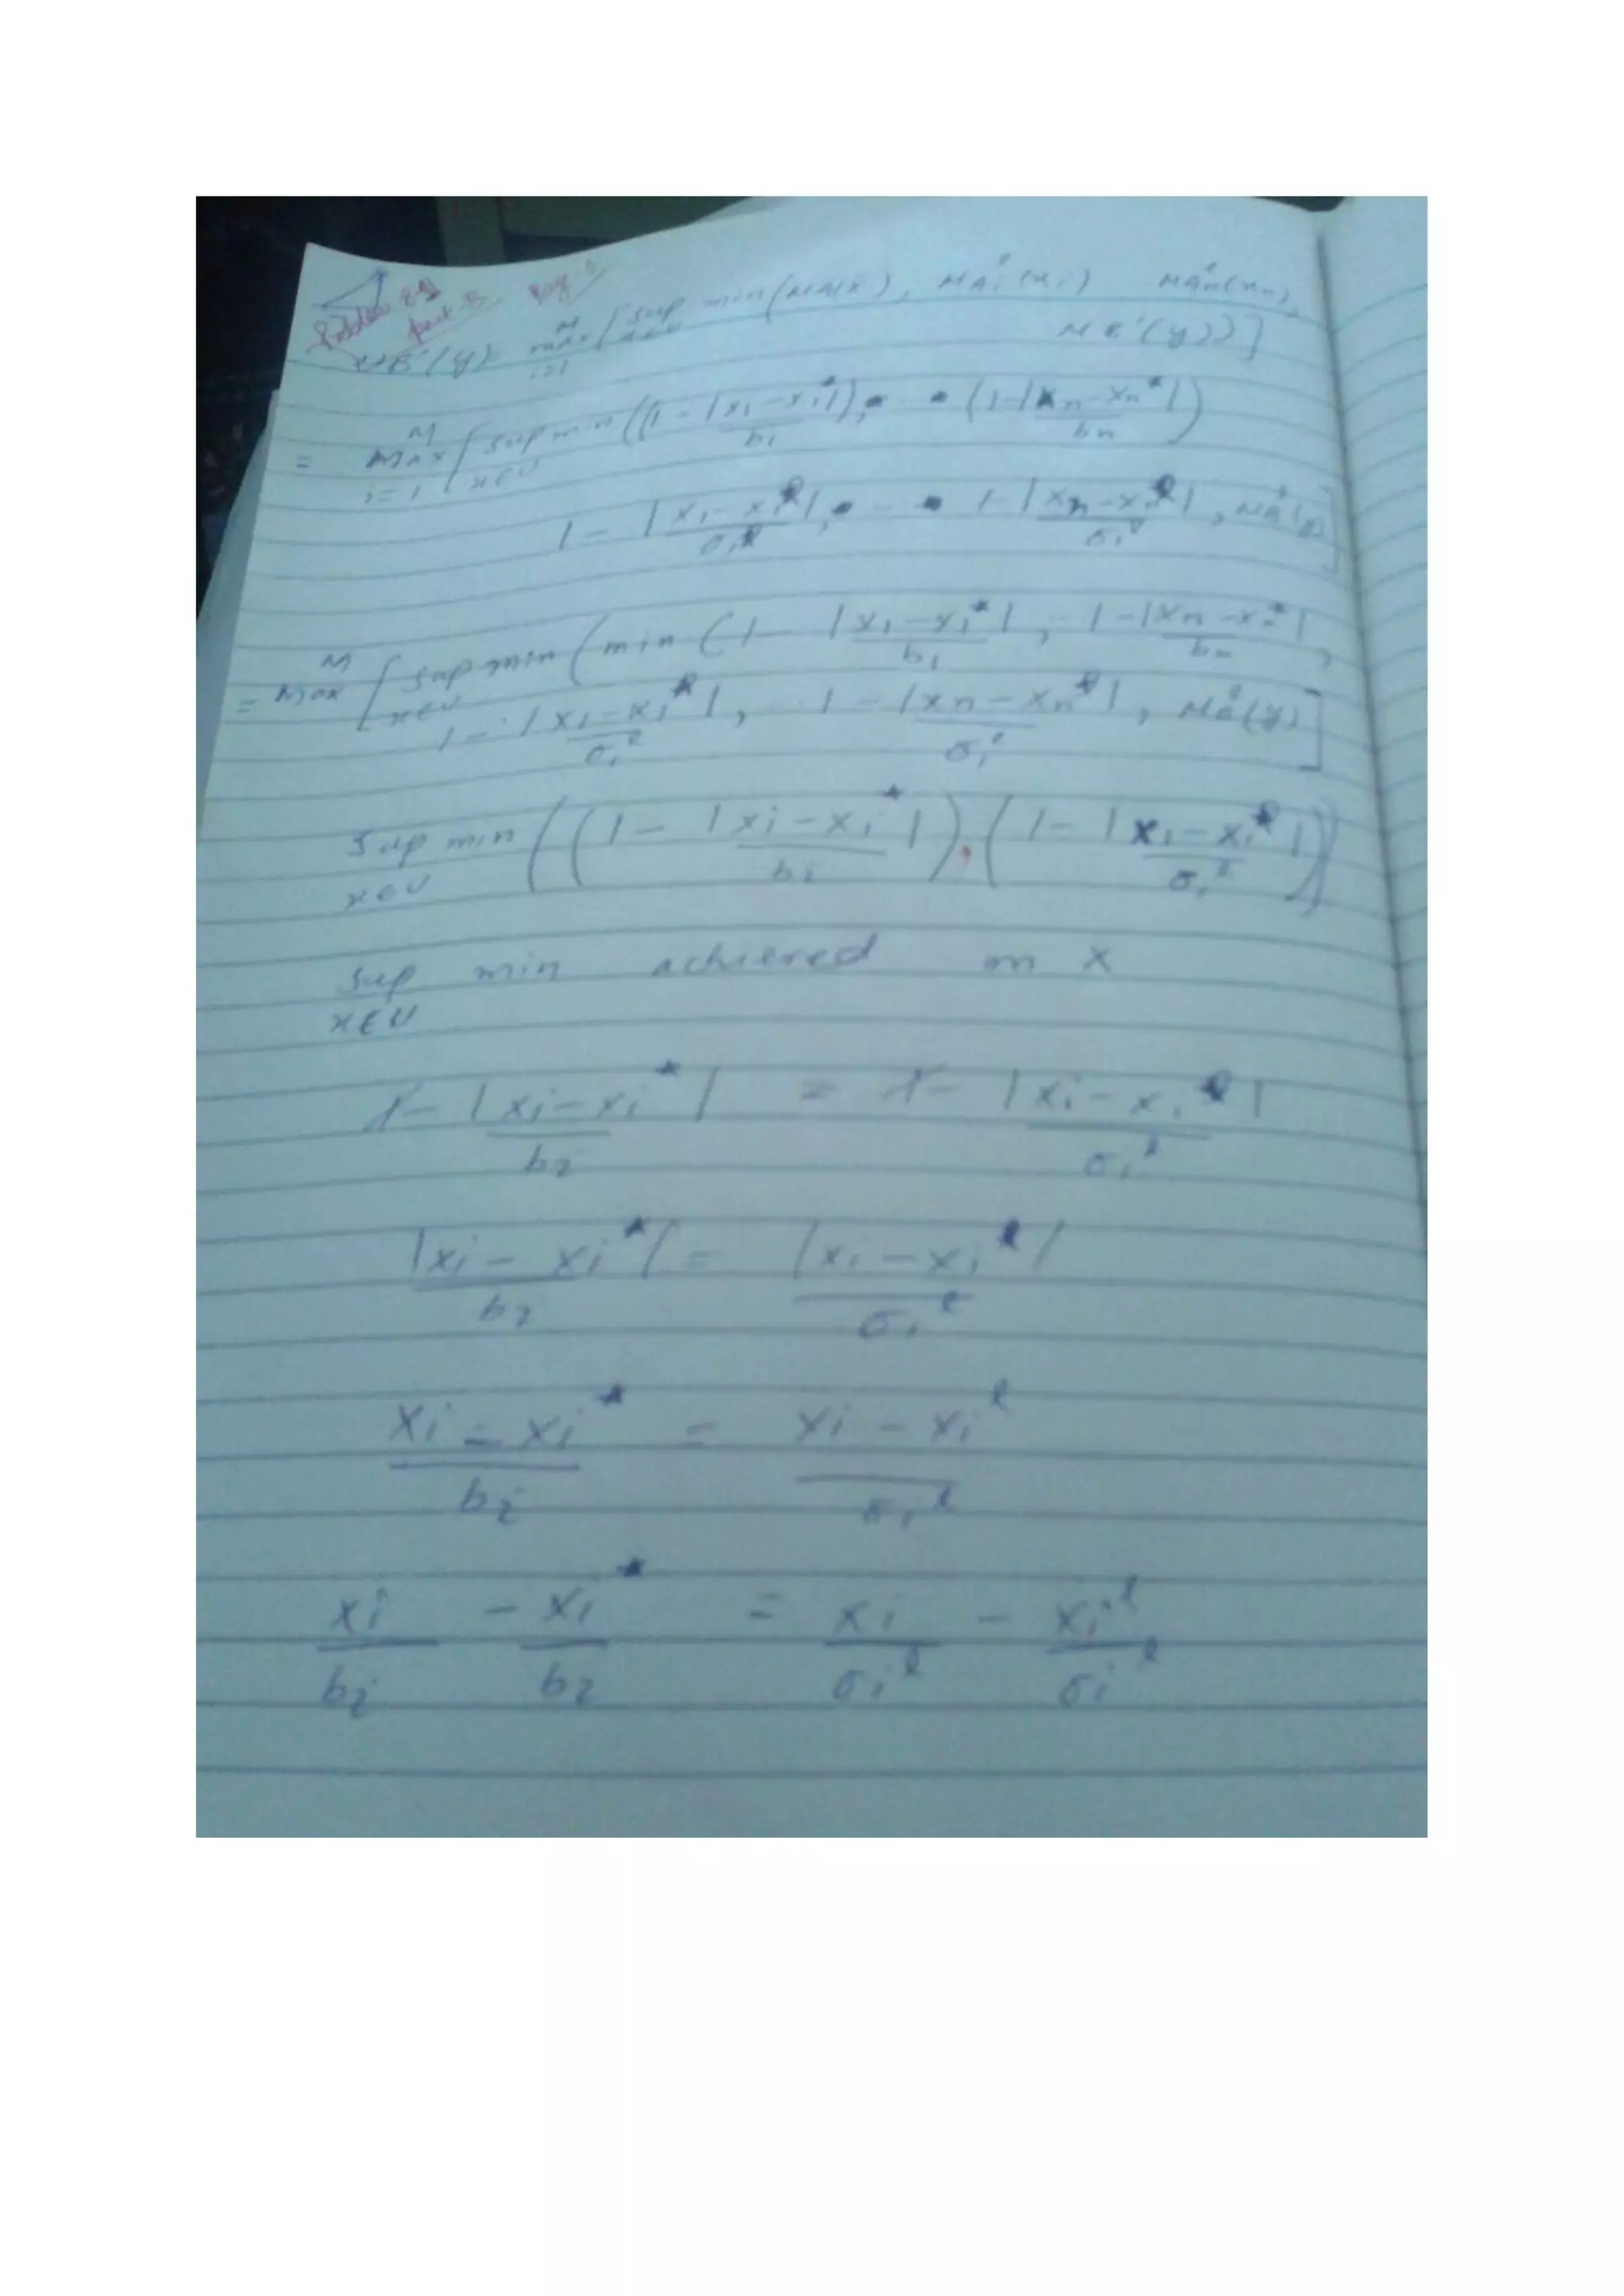 Problem
part B
μB'(y) = max [sup min (μA(x), μA₁ˡ(x₁) μAₙˡ(xₙ),
i=1 x∈U
μB'(y))]
= M max i=1 [sup min x∈U ((1 - |x₁-x₁*|/b₁), • • (1-|xₙ-xₙ*|/bₙ)
1 - |x₁-x₁ˡ|/σ₁ˡ, • - • 1 - |xₙ-xₙˡ|/σ₁ˡ,
= M max [sup min x∈U (min (1 - |x₁-x₁*|/b₁, - 1-|xₙ-xₙ*|/bₙ,
1 - |x₁-x₁ˡ|/σ₁ˡ, 1 - |xₙ-xₙˡ|/σ₁ˡ, (y)]
sup min x∈U ((1 - |xi-xi*|/bi).(1 - |x₁-x₁ˡ|/σ₁ˡ))
sup min achieved on x
x∈U
1 - |xi-xi*|/bi = 1 - |xi-xiˡ|/σiˡ
|xi-xi*|/bi = |xi-xiˡ|/σiˡ
xi-xi*/bi = xi-xiˡ/σiˡ
xi/bi - xi*/bi = xi/σiˡ - xiˡ/σiˡ